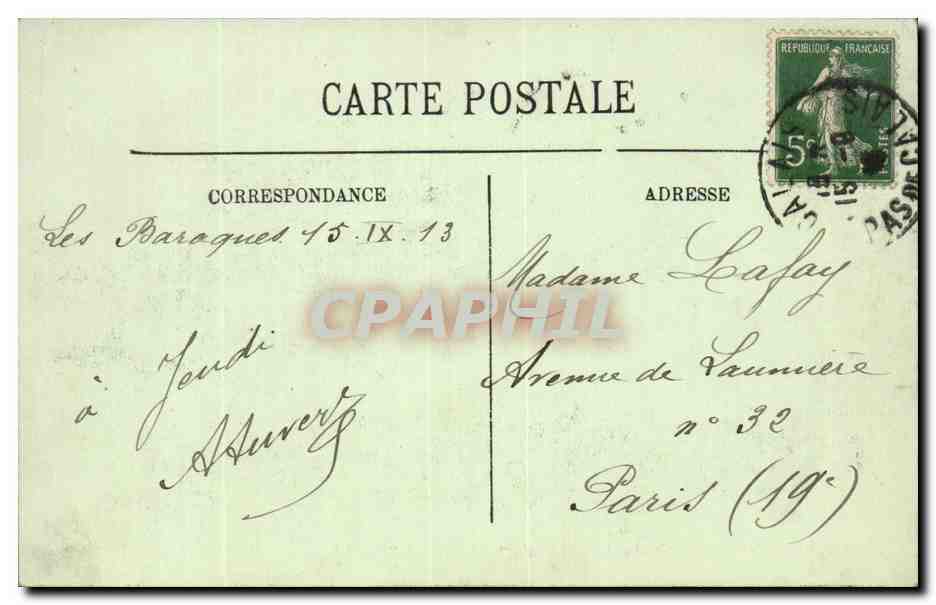 CARTE POSTALE
CORRESPONDANCE
ADRESSE
REPUBLIQUE FRANÇAISE
5c
POSTES
CALAIS
15-9
PAS DE CALAIS
Les Baraques 15.IX.13
à Jeudi
Madame Lafay
Avenue de Laumière
n° 32
Paris (19e)
CPAPHIL